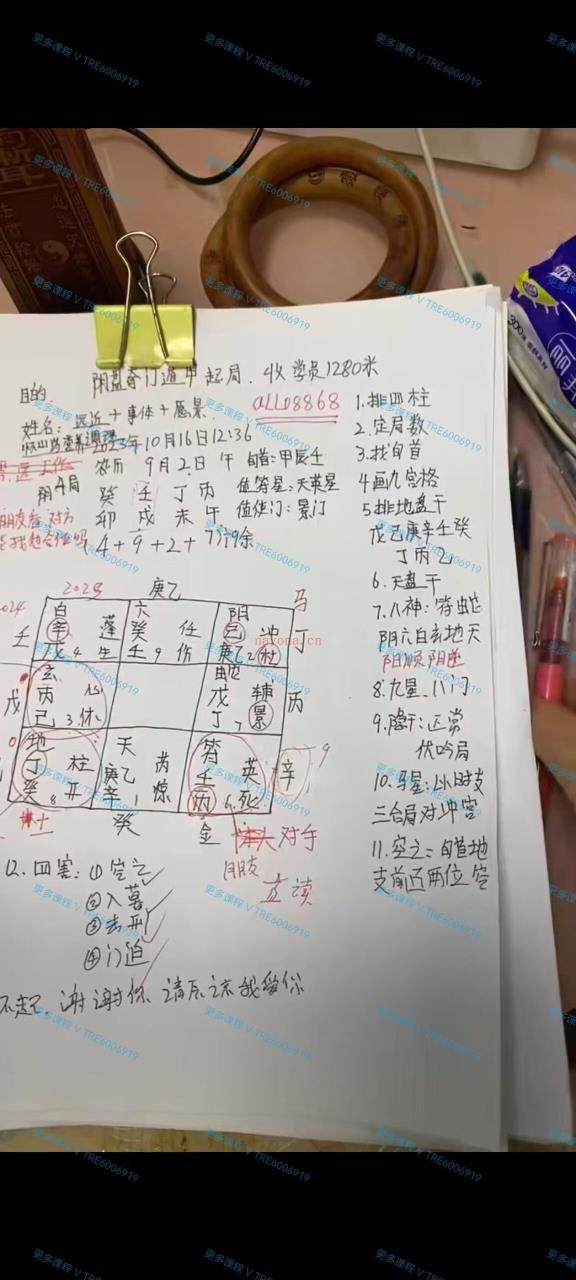 更多课程 V TRE6006919
阴盘奇门遁甲起局. 收学员1280米
目的:
姓名: 远近+事体+愿景.
2023年10月16日12:36
a1108868
农历 9月2日 午 旬首:甲辰壬
阴4局 癸 壬 丁 丙 值符星:天英星
卯 戌 未 午 值使门:景门
4+9+2+7÷9余
1.排四柱
2.定局数
3.找旬首
4画九宫格
5排地盘干
戊己庚辛壬癸
丁丙乙
6.天盘干
7.八神:符蛇
阴六白玄地天
阳顺阴逆
8.九星.八门
9.隐干:正常
伏吟局
10.马星:以时支
三合局对冲宫
11.空亡:旬首地
支前还两位空
2023 庚乙 马
白 六 阴
壬 辛 蓬 癸 任 己 冲 丁
戊 4 生 壬 9 伤 庚乙 2 杜
玄 蛇
戊 丙 心 戊 辅 丙
己 3.休 丁 7 景
地 天 符
丁 柱 庚乙 芮 壬 英 辛
癸 8 开 辛 1 惊 丙 6.死
癸 金 对手
朋友
直读
12.四害:①空亡
②入墓
③击刑
④门迫
不起. 谢谢你 请原谅 我爱你
nayona.cn